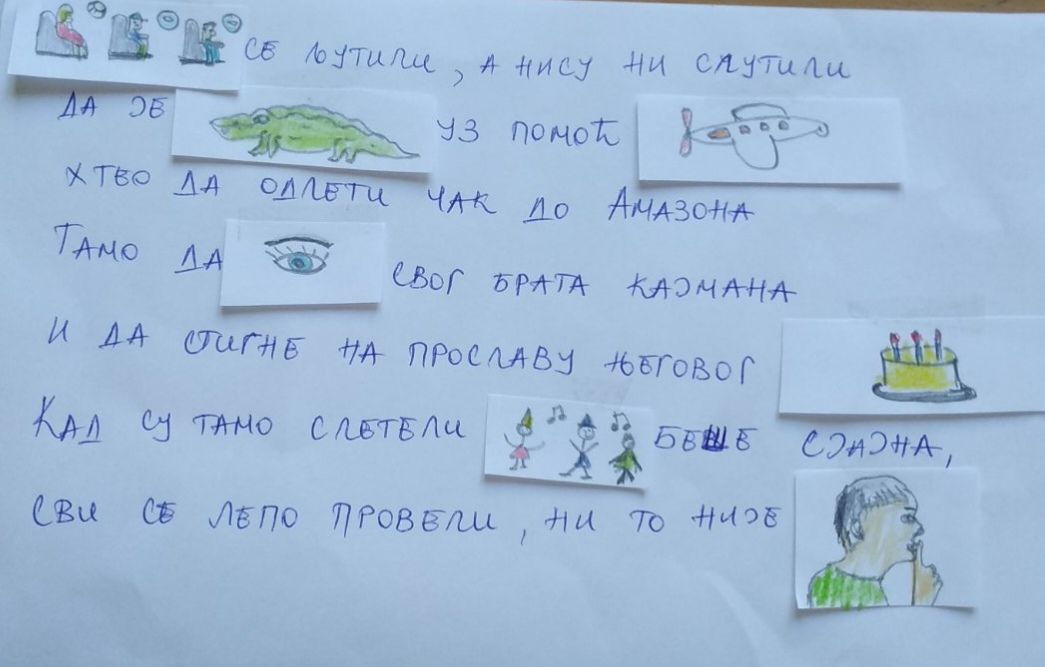 се љутили, а нису ни слутили
да је уз помоћ
хтео да одлети чак до Амазона
Тамо да свог брата кајмана
и да стигне на прославу његовог
Кад су тамо слетели беше сјајна,
сви се лепо провели, ни то није